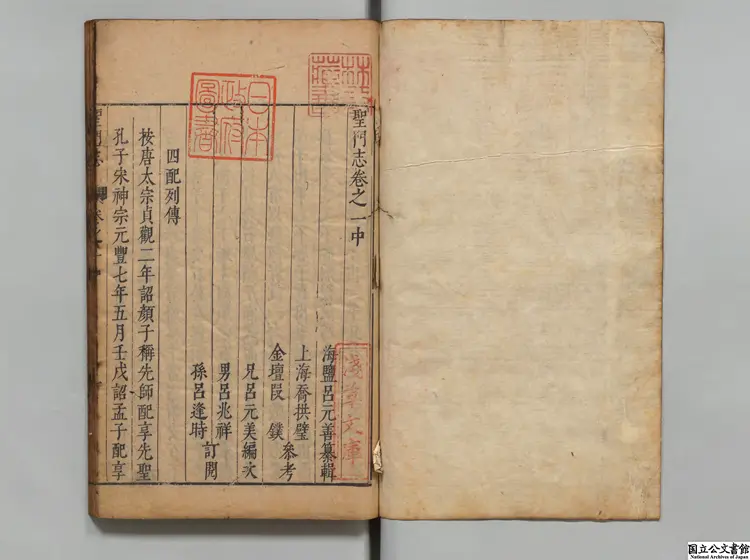 聖門志卷之一中
海鹽呂元善纂輯
上海喬拱璧
參考
金壇段鏷
兄呂元美編次
男呂兆祥
訂閱
孫呂逢時
四配列傳
按唐太宗貞觀二年詔顏子稱先師配享先聖
孔子宋神宗元豐七年五月壬戌詔孟子配享
聖門志
卷之一中
日本
政府
圖書
林氏
藏書
淺草文庫
国立公文書館
National Archives of Japan